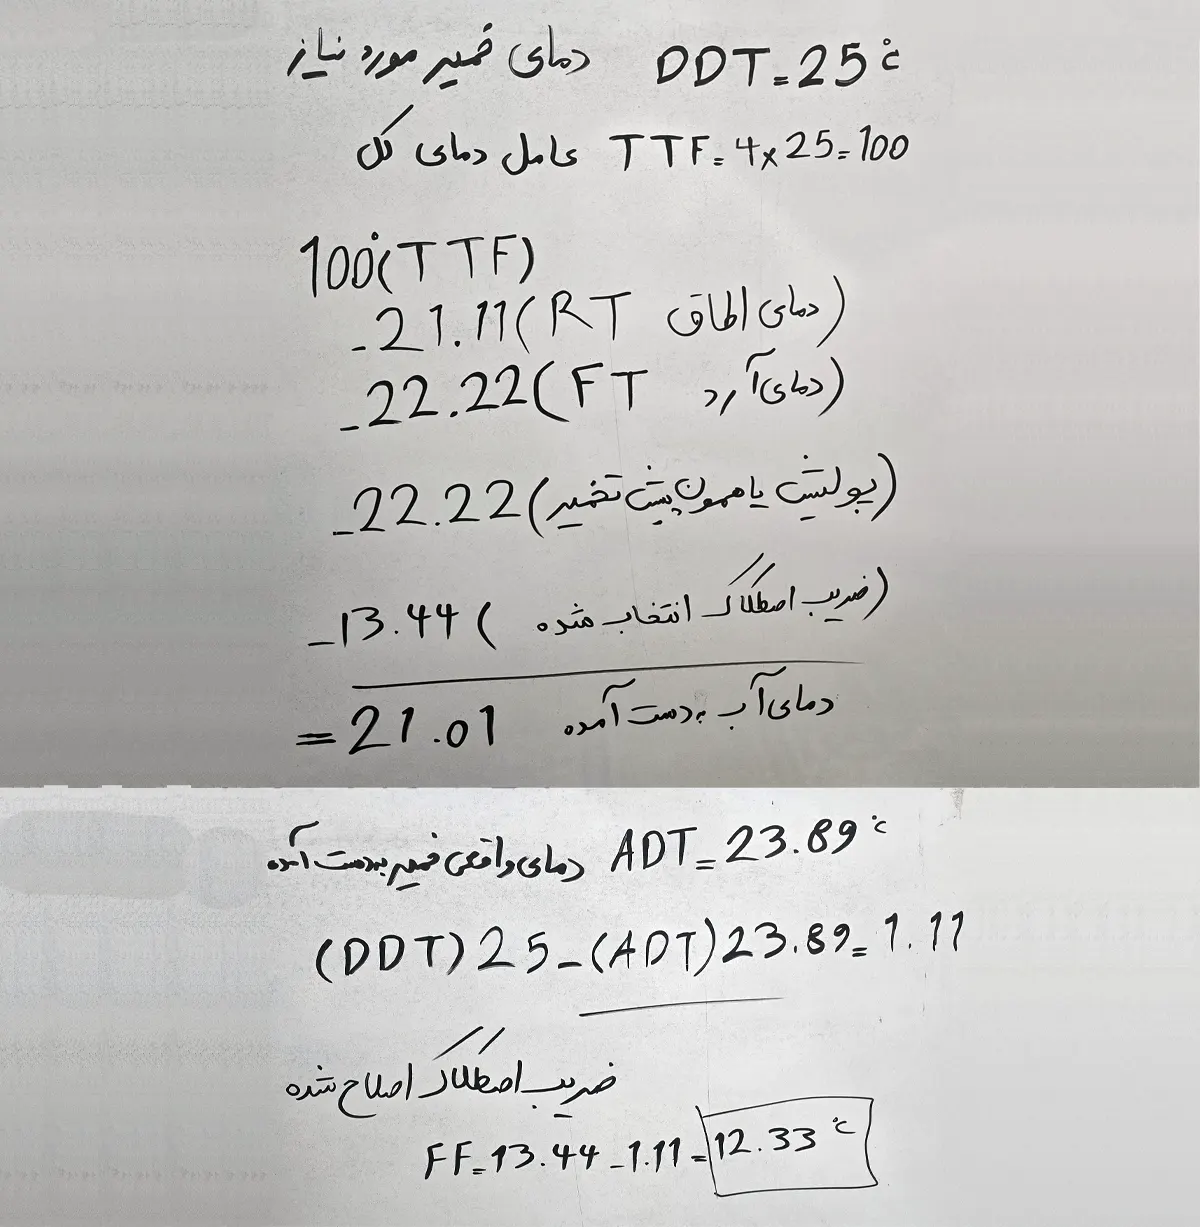 دمای خمیر مورد نیاز DDT=25°C
عامل دمای کل TTF=4×25=100
100°(TTF)
-21.11(RT دمای اطاق)
-22.22(FT دمای آرد)
-22.22(پولیش یا همون پیش تخمیر)
-13.44(ضریب اصطکاک انتخاب شده)
=21.01 دمای آب بدست آمده
دمای واقعی خمیر بدست آمده ADT=23.89°C
(DDT)25-(ADT)23.89=1.11
ضریب اصطکاک اصلاح شده
FF=13.44-1.11=12.33°C